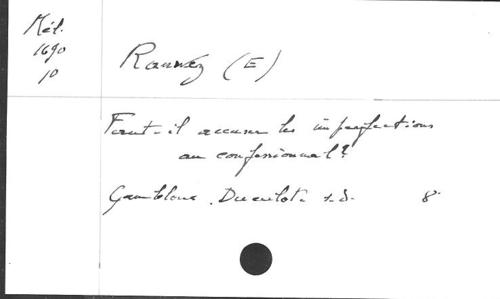 Mél.
1690
10
Ranwez (E)
Faut-il accuser les imperfections
au confessionnal?
Gembloux, Duculot s.d. 8°